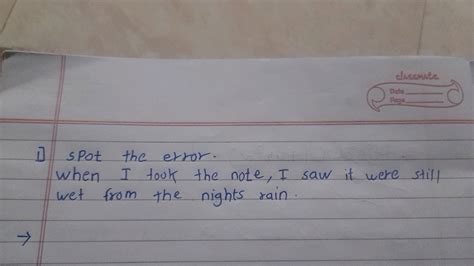 classmate
Date
Page
1] spot the error.
when I took the note, I saw it were still
wet from the nights rain.
→